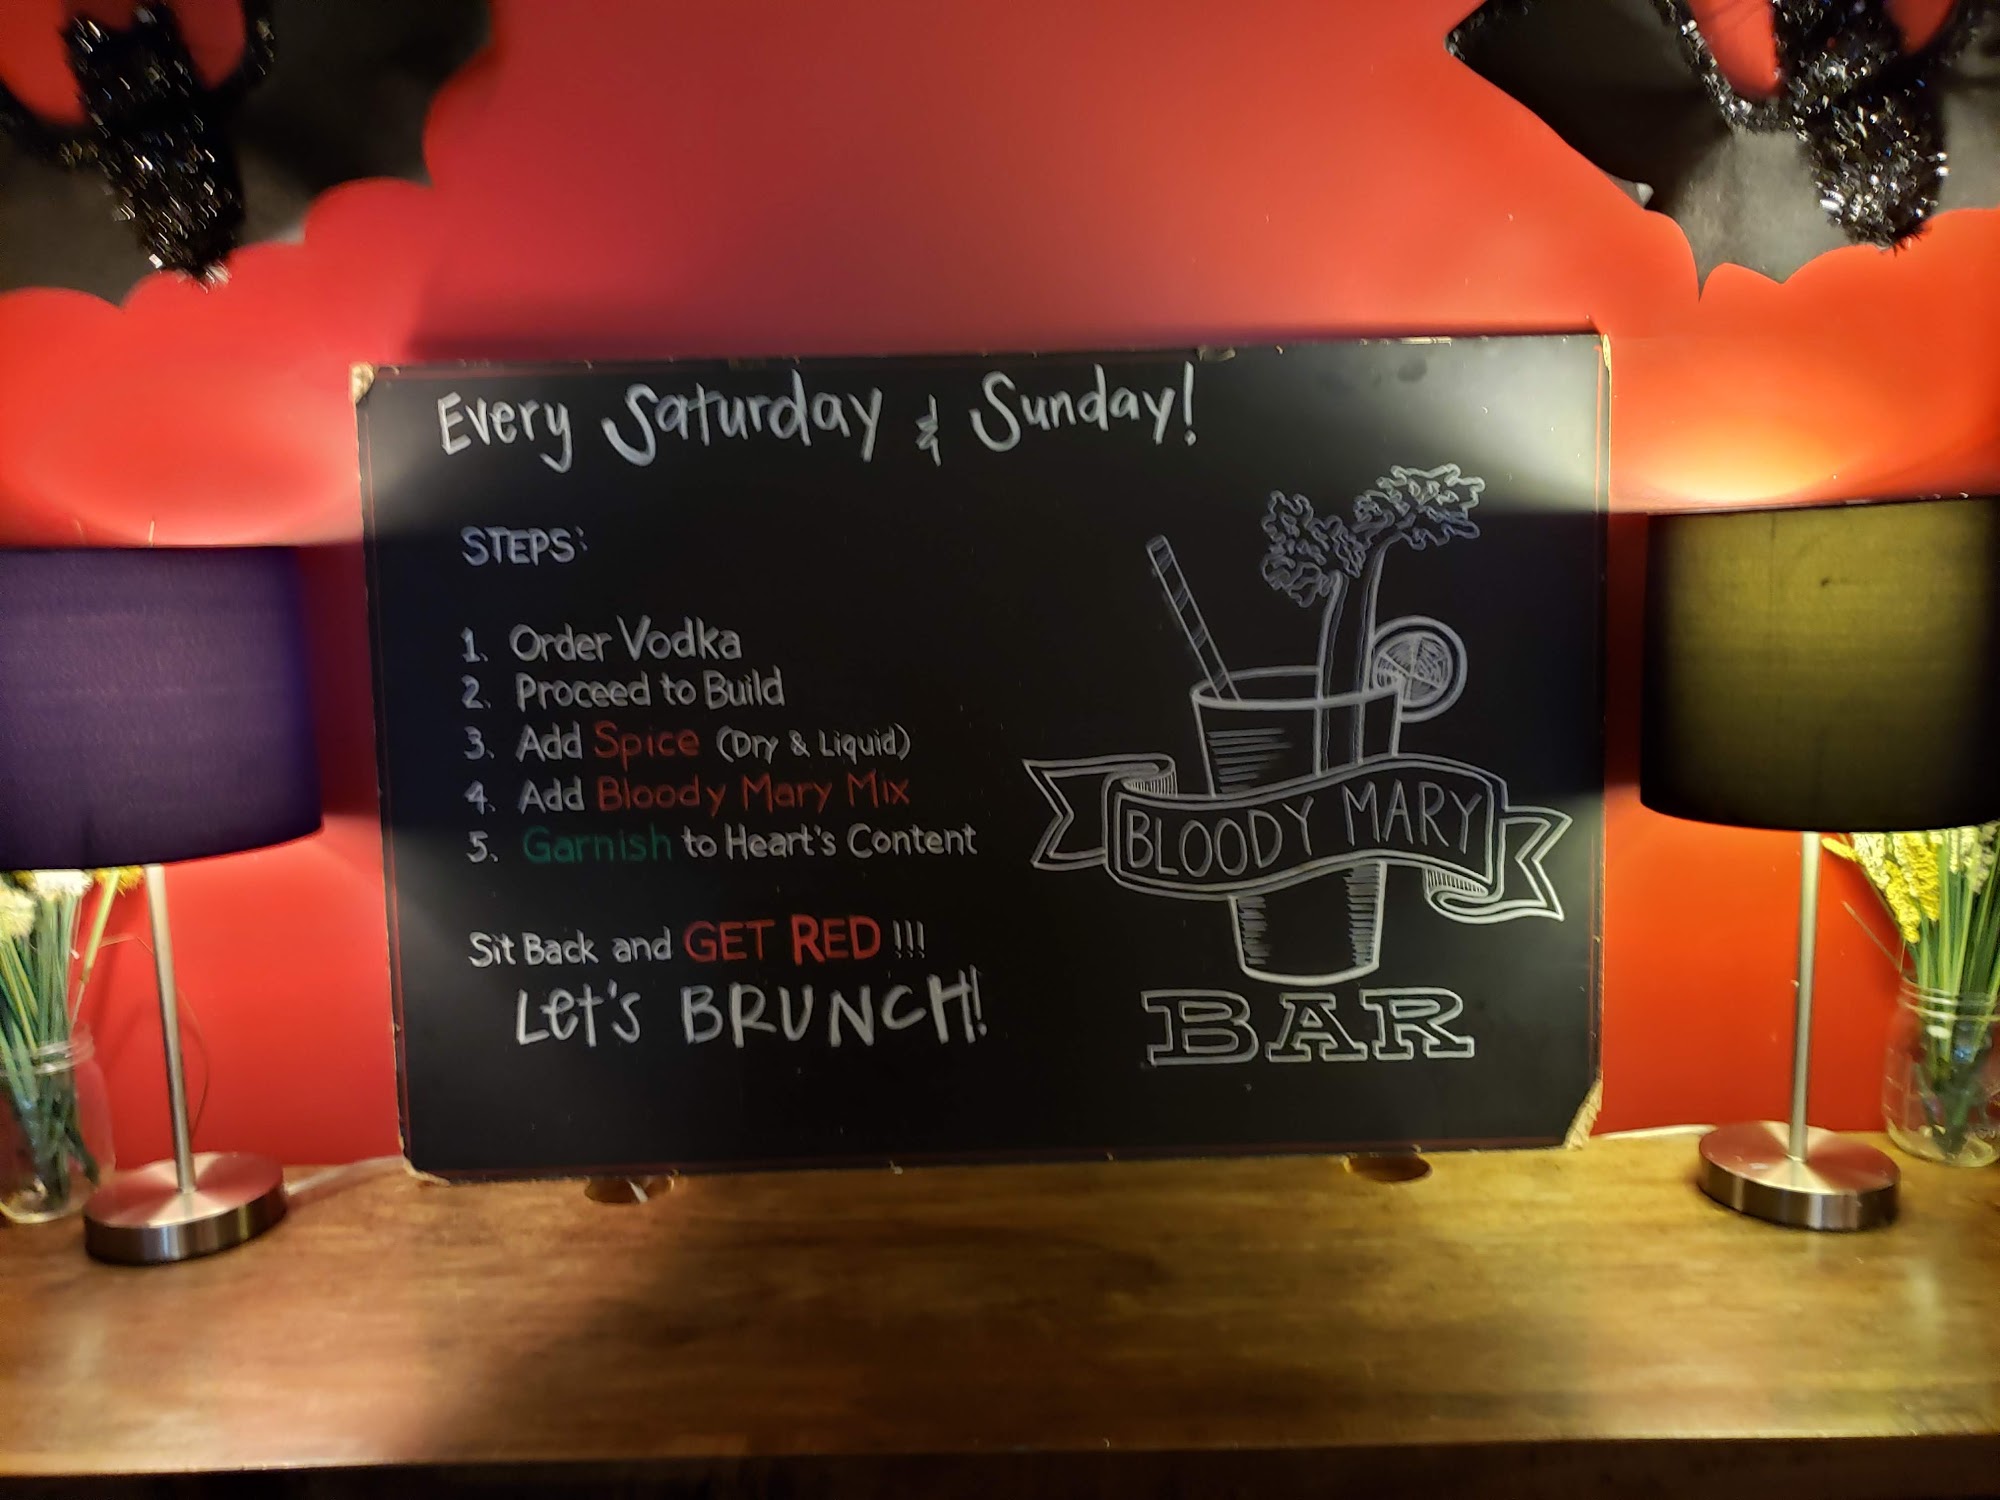 Every Saturday & Sunday!
STEPS:
1. Order Vodka
2. Proceed to Build
3. Add Spice (Dry & Liquid)
4. Add Bloody Mary Mix
5. Garnish to Heart's Content
Sit Back and GET RED!!!
Let's BRUNCH!
BLOODY MARY
BAR